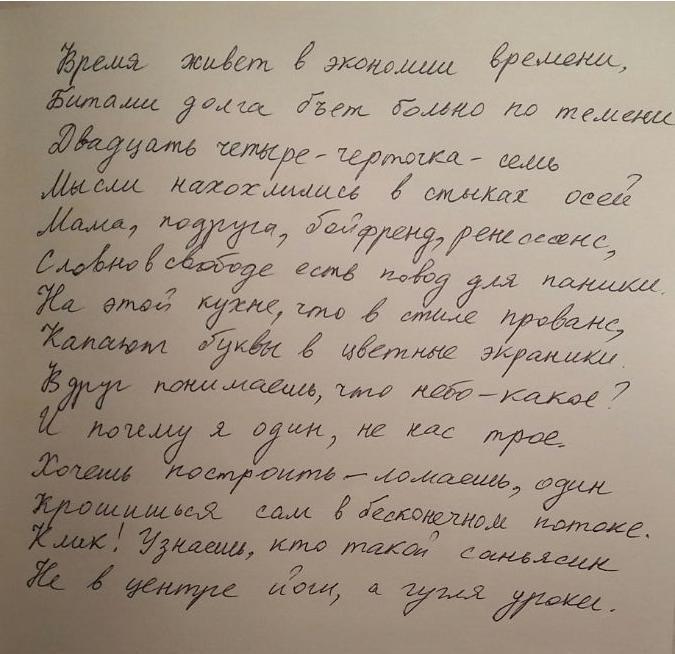 Время живет в экономии времени,
Битами долга бъет больно по темени
Двадцать четыре-черточка-семь
Мысли нахохлились в стыках осей
Мама, подруга, бойфренд, ренессанс,
Словно в свободе есть повод для паники.
На этой кухне, что в стиле прованс,
Капают буквы в цветные экраники.
Вдруг понимаешь, что небо-какое?
И почему я один, не нас трое.
Хочешь построить-ломаешь, один
Крошишься сам в бесконечном потоке.
Клик! Узнаешь, кто такой саньясин
Не в центре йоги, а гугля уроки.